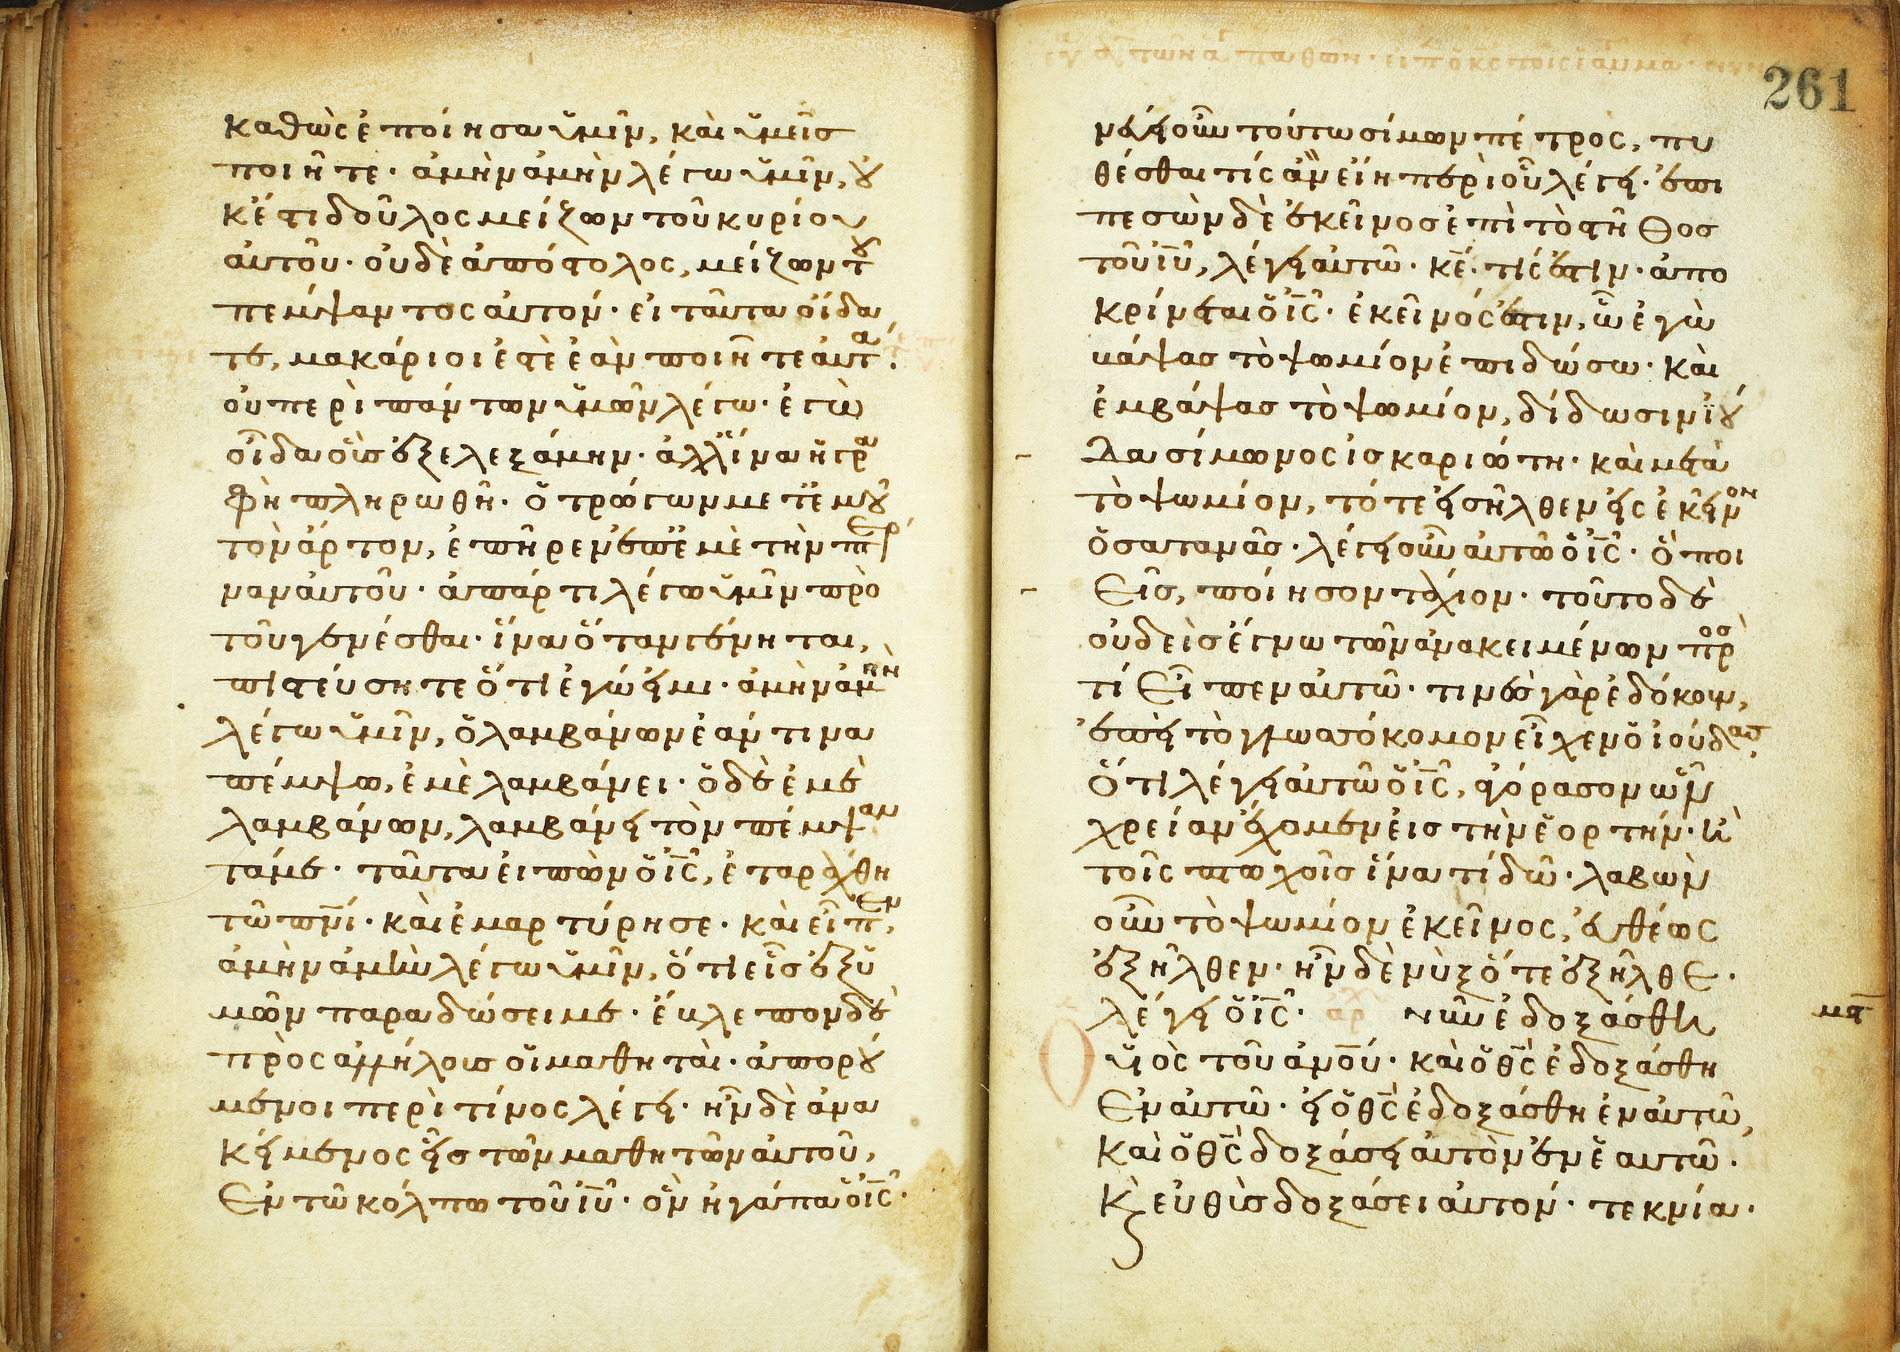 καθὼς ἐποίησα ὑμῖν, καὶ ὑμεῖς
ποιῆτε· ἀμὴν ἀμὴν λέγω ὑμῖν, οὐ
κ ἔστι δοῦλος μείζων τοῦ κυρίου
αὐτοῦ· οὐδὲ ἀπόστολος, μείζων τοῦ
πέμψαντος αὐτόν· εἰ ταῦτα οἴδα
τε, μακάριοί ἐστὲ ἐὰν ποιῆτε αὐτά·
οὐ περὶ πάντων ὑμῶν λέγω· ἐγὼ
οἶδα οὓς ἐξελεξάμην· ἀλλ' ἵνα ἡ γρα
φὴ πληρωθῆ· ὁ τρώγων μετ' ἐμοῦ
τὸν ἄρτον, ἐπῆρεν ἐπ' ἐμὲ τὴν πτέρ
ναν αὐτοῦ· ἀπάρτι λέγω ὑμῖν πρὸ
τοῦ γενέσθαι· ἵνα ὅταν γένηται,
πιστεύσητε ὅτι ἐγώ εἰμι· ἀμὴν ἀμὴν
λέγω ὑμῖν, ὁ λαμβάνων ἐάν τινα
πέμψω, ἐμὲ λαμβάνει· ὁ δὲ ἐμὲ
λαμβάνων, λαμβάνει τὸν πέμψαν
τά με· ταῦτα εἰπὼν ὁ ι̅ς̅, ἐταράχθη
τῶ π̅ν̅ι̅· καὶ ἐμαρτύρησε· καὶ εἶπεν,
ἀμὴν ἀμὴν λέγω ὑμῖν, ὅτι εἷς ἐξ ὑ
μῶν παραδώσει με· ἔβλεπον δὲ
πρὸς ἀλλήλους οἱ μαθηταὶ· ἀπορού
μενοι περὶ τίνος λέγει· ἦν δὲ ἀνα
κείμενος εἷς τῶν μαθητῶν αὐτοῦ,
ἐν τῶ κόλπω τοῦ ι̅υ̅· ὃν ἠγάπα ὁ ι̅ς̅·
261
νεύει οὖν τούτω σίμων πέτρος, πυ
θέσθαι τίς ἂν εἴη περὶ οὗ λέγει· ἐπι
πεσὼν δὲ ἐκεῖνος ἐπὶ τὸ στῆθος
τοῦ ι̅υ̅, λέγει αὐτῶ· κ̅ε̅· τίς ἐστιν· ἀπο
κρίνεται ὁ ι̅ς̅· ἐκεῖνός ἐστιν, ὧ ἐγὼ
βάψας τὸ ψωμίον ἐπιδώσω· καὶ
ἐμβάψας τὸ ψωμίον, δίδωσιν ἰού
δα σίμωνος ἰσκαριώτη· καὶ μετὰ
τὸ ψωμίον, τότε εἰσῆλθεν εἰς ἐκεῖνον
ὁ σατανᾶς· λέγει οὖν αὐτῶ ὁ ι̅ς̅· ὃ ποι
εῖς, ποίησον τάχιον· τοῦτο δὲ
οὐδεὶς ἔγνω τῶν ἀνακειμένων πρὸς
τί εἶπεν αὐτῶ· τινὲς γὰρ ἐδόκουν,
ἐπεὶ τὸ γλωσσόκομον εἶχεν ὁ ἰούδας,
ὅτι λέγει αὐτῶ ὁ ι̅ς̅, ἀγόρασον ὧν
χρείαν ἔχομεν εἰς τὴν ἑορτήν· ἢ
τοῖς πτωχοῖς ἵνα τί δῶ· λαβὼν
οὖν τὸ ψωμίον ἐκεῖνος, εὐθέως
ἐξῆλθεν· ἦν δὲ νὺξ ὅτε ἐξῆλθε·
λέγει ὁ ι̅ς̅· νῦν ἐδοξάσθη
ὁ υἱὸς τοῦ α̅ν̅ο̅υ̅· καὶ ὁ θ̅ς̅ ἐδοξάσθη
ἐν αὐτῶ· εἰ ὁ θ̅ς̅ ἐδοξάσθη ἐν αὐτῶ,
καὶ ὁ θ̅ς̅ δοξάσει αὐτὸν ἐν ἑαυτῶ·
κ̀ εὐθὺς δοξάσει αὐτόν· τεκνία·